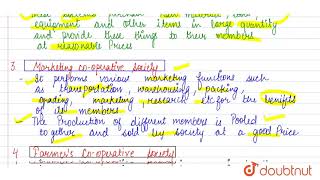 equipment and other items in large quantity
and provide these things to their members
at reasonable Prices
3. Marketing co-operative Society
- It performs various marketing functions such
as transportation, warehousing, packing,
grading, marketing research etc for the benefits
of its members
- The Production of different members is Pooled
together and sold by society at a good Price
4 Farmer's Co-operative Society
doubtnut